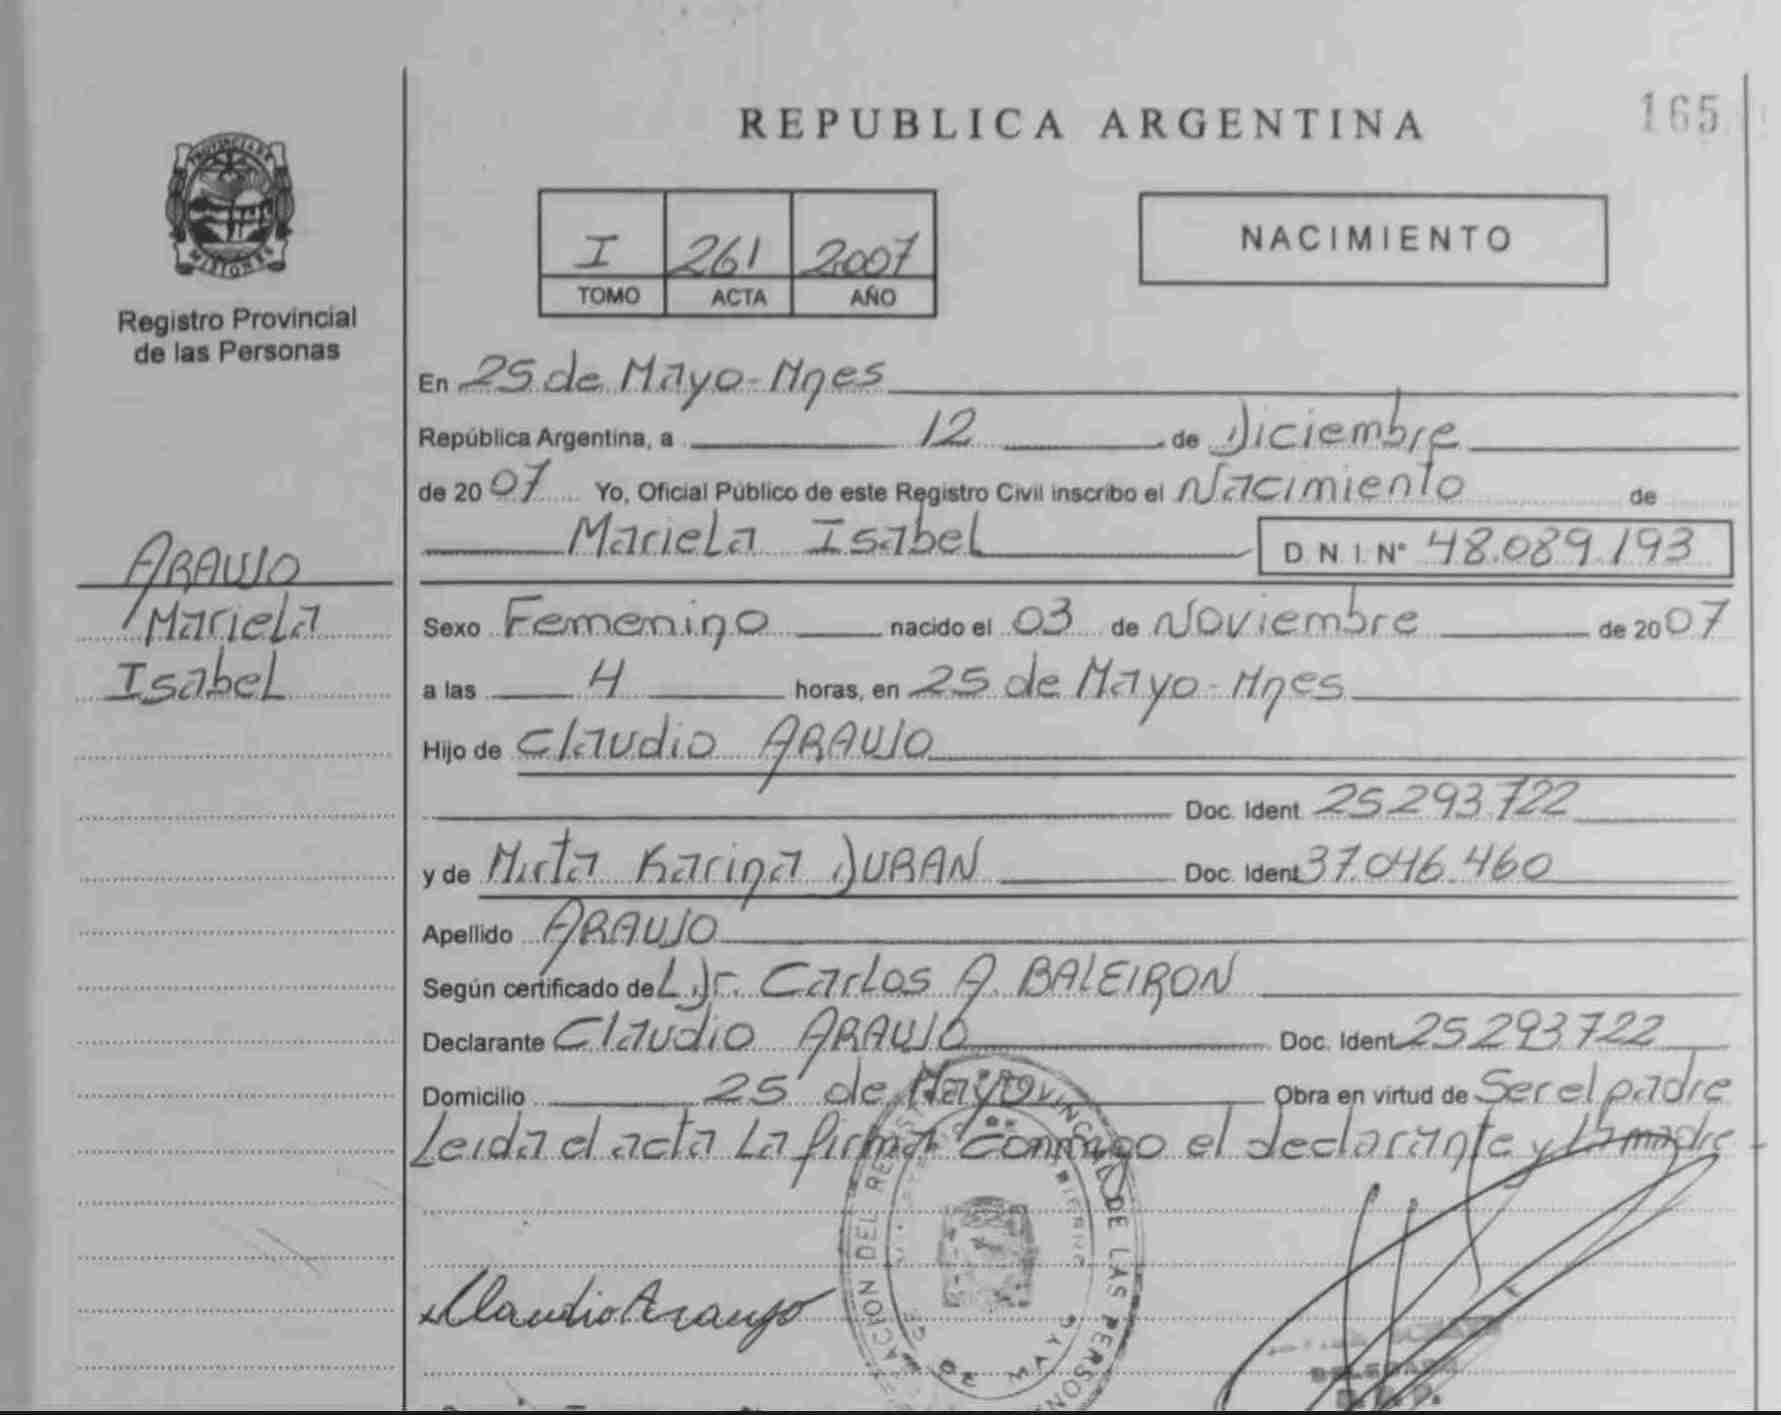 REPUBLICA ARGENTINA
165
PROVINCIA DE
MISIONES
Registro Provincial
de las Personas
I 261 2007
TOMO ACTA AÑO
NACIMIENTO
En 25 de Mayo-Mnes
República Argentina, a 12 de Diciembre
de 2007 Yo, Oficial Público de este Registro Civil inscribo el Nacimiento de
Mariela Isabel D.N.I.N° 48.089.193
ARAUJO
Mariela
Isabel
Sexo Femenino nacido el 03 de Noviembre de 2007
a las 4 horas, en 25 de Mayo-Mnes
Hijo de Claudio ARAUJO
Doc. Ident. 25.293.722
y de Mirta Karina DURAN Doc. Ident 37.046.460
Apellido ARAUJO
Según certificado de L Dr. Carlos A. BALEIRON
Declarante Claudio ARAUJO Doc. Ident. 25293722
Domicilio 25 de Mayo Obra en virtud de Ser el padre
Leida el acta La firma Conmigo el declarante y La madre-
Claudio Araujo
DE LAS